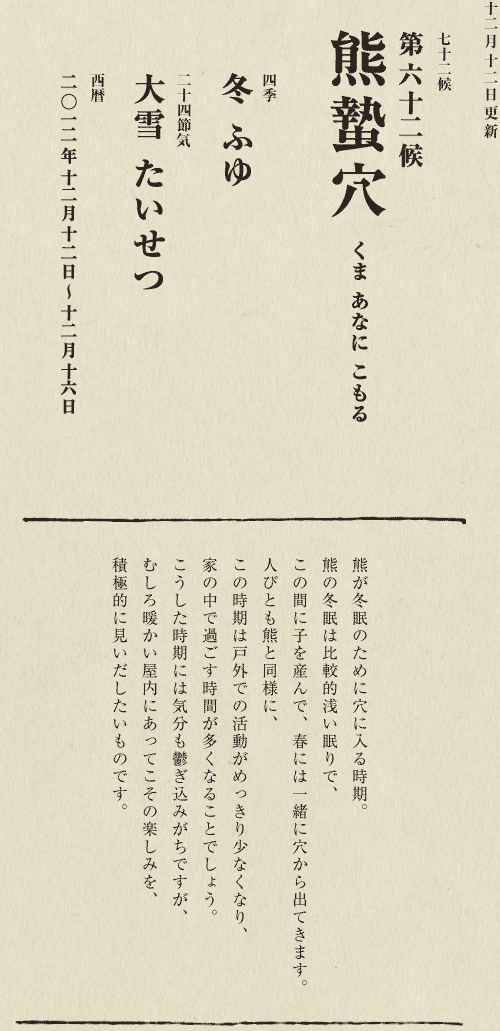 十二月十二日更新
七十二候
第六十二候
熊蟄穴 くま あなに こもる
四季
冬 ふゆ
二十四節気
大雪 たいせつ
西暦
二〇一二年十二月十二日〜十二月十六日
熊が冬眠のために穴に入る時期。
熊の冬眠は比較的浅い眠りで、
この間に子を産んで、春には一緒に穴から出てきます。
人びとも熊と同様に、
この時期は戸外での活動がめっきり少なくなり、
家の中で過ごす時間が多くなることでしょう。
こうした時期には気分も鬱ぎ込みがちですが、
むしろ暖かい屋内にあってこその楽しみを、
積極的に見いだしたいものです。